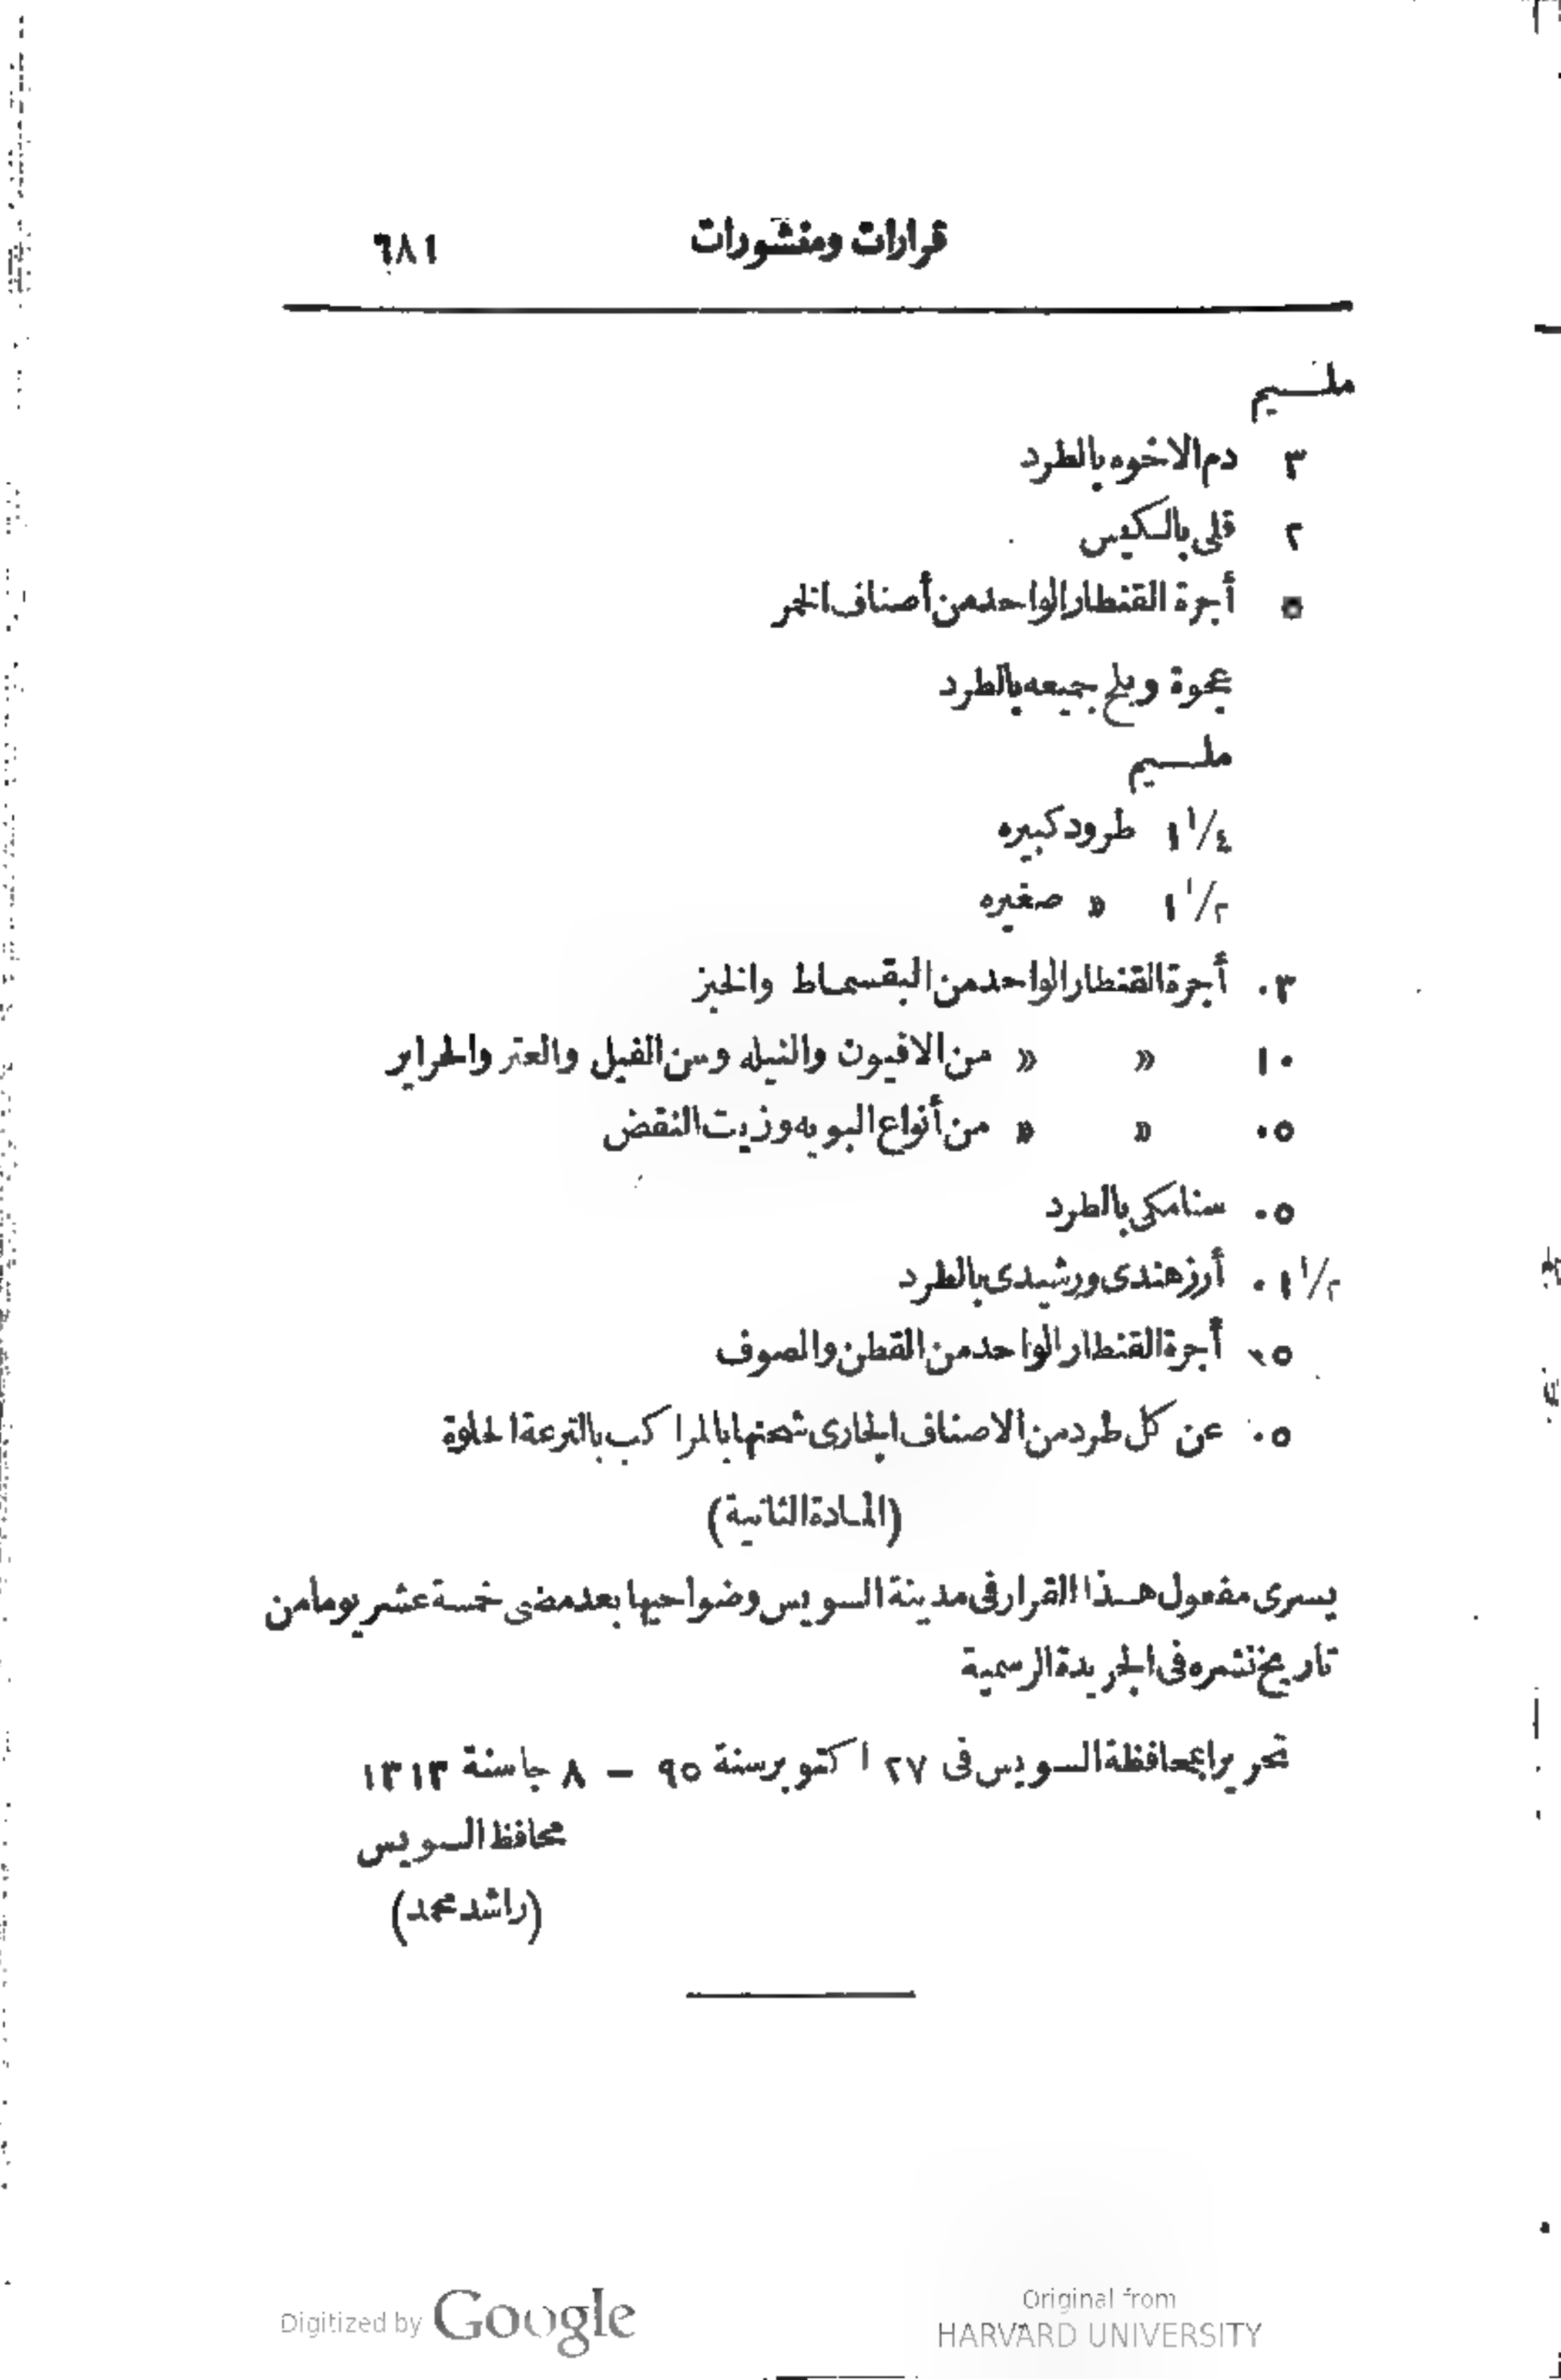 قرارات ومنشورات ٦٨١
مليم
٣ دم الاخوه بالطرد
٢ قلى بالكيس
٥ أجرة القنطار الواحد من أصناف الخمر
عجوة وبلح جميعه بالطرد
مليم
١ ١/٤ طرود كبيره
١ ١/٢ » صغيره
٠٣ أجرة القنطار الواحد من البقسماط والخبز
١٠ » » من الافيون والنيله وسن الفيل والعتر والحراير
٠٥ » » من أنواع البويه وزيت النقض
٠٥ سنامكى بالطرد
٠١ ١/٢ أرز هندى ورشيدى بالطرد
٠٥ أجرة القنطار الواحد من القطن والصوف
٠٥ عن كل طرد من الاصناف الجارى شحنها بالمراكب بالترعة الحلوة
(المادة الثانية)
يسرى مفعول هذا القرار فى مدينة السويس وضواحيها بعد مضى خمسة عشر يوما من
تاريخ نشره فى الجريدة الرسمية
تحريرا بمحافظة السويس فى ٢٧ اكتوبر سنة ٩٥ – ٨ جا سنة ١٣١٣
محافظ السويس
(راشد محمد)
Digitized by Google
Original from
HARVARD UNIVERSITY